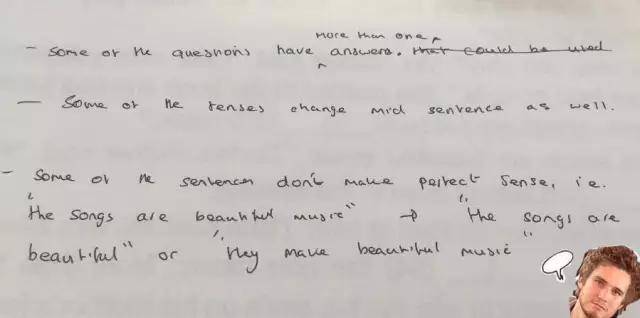 more than one
- Some of the questions have answers. that could be used
- Some of the tenses change mid sentence as well.
- Some of the sentences don't make perfect sense, i.e.
"the songs are beautiful music" → "the songs are
beautiful" or "they make beautiful music"